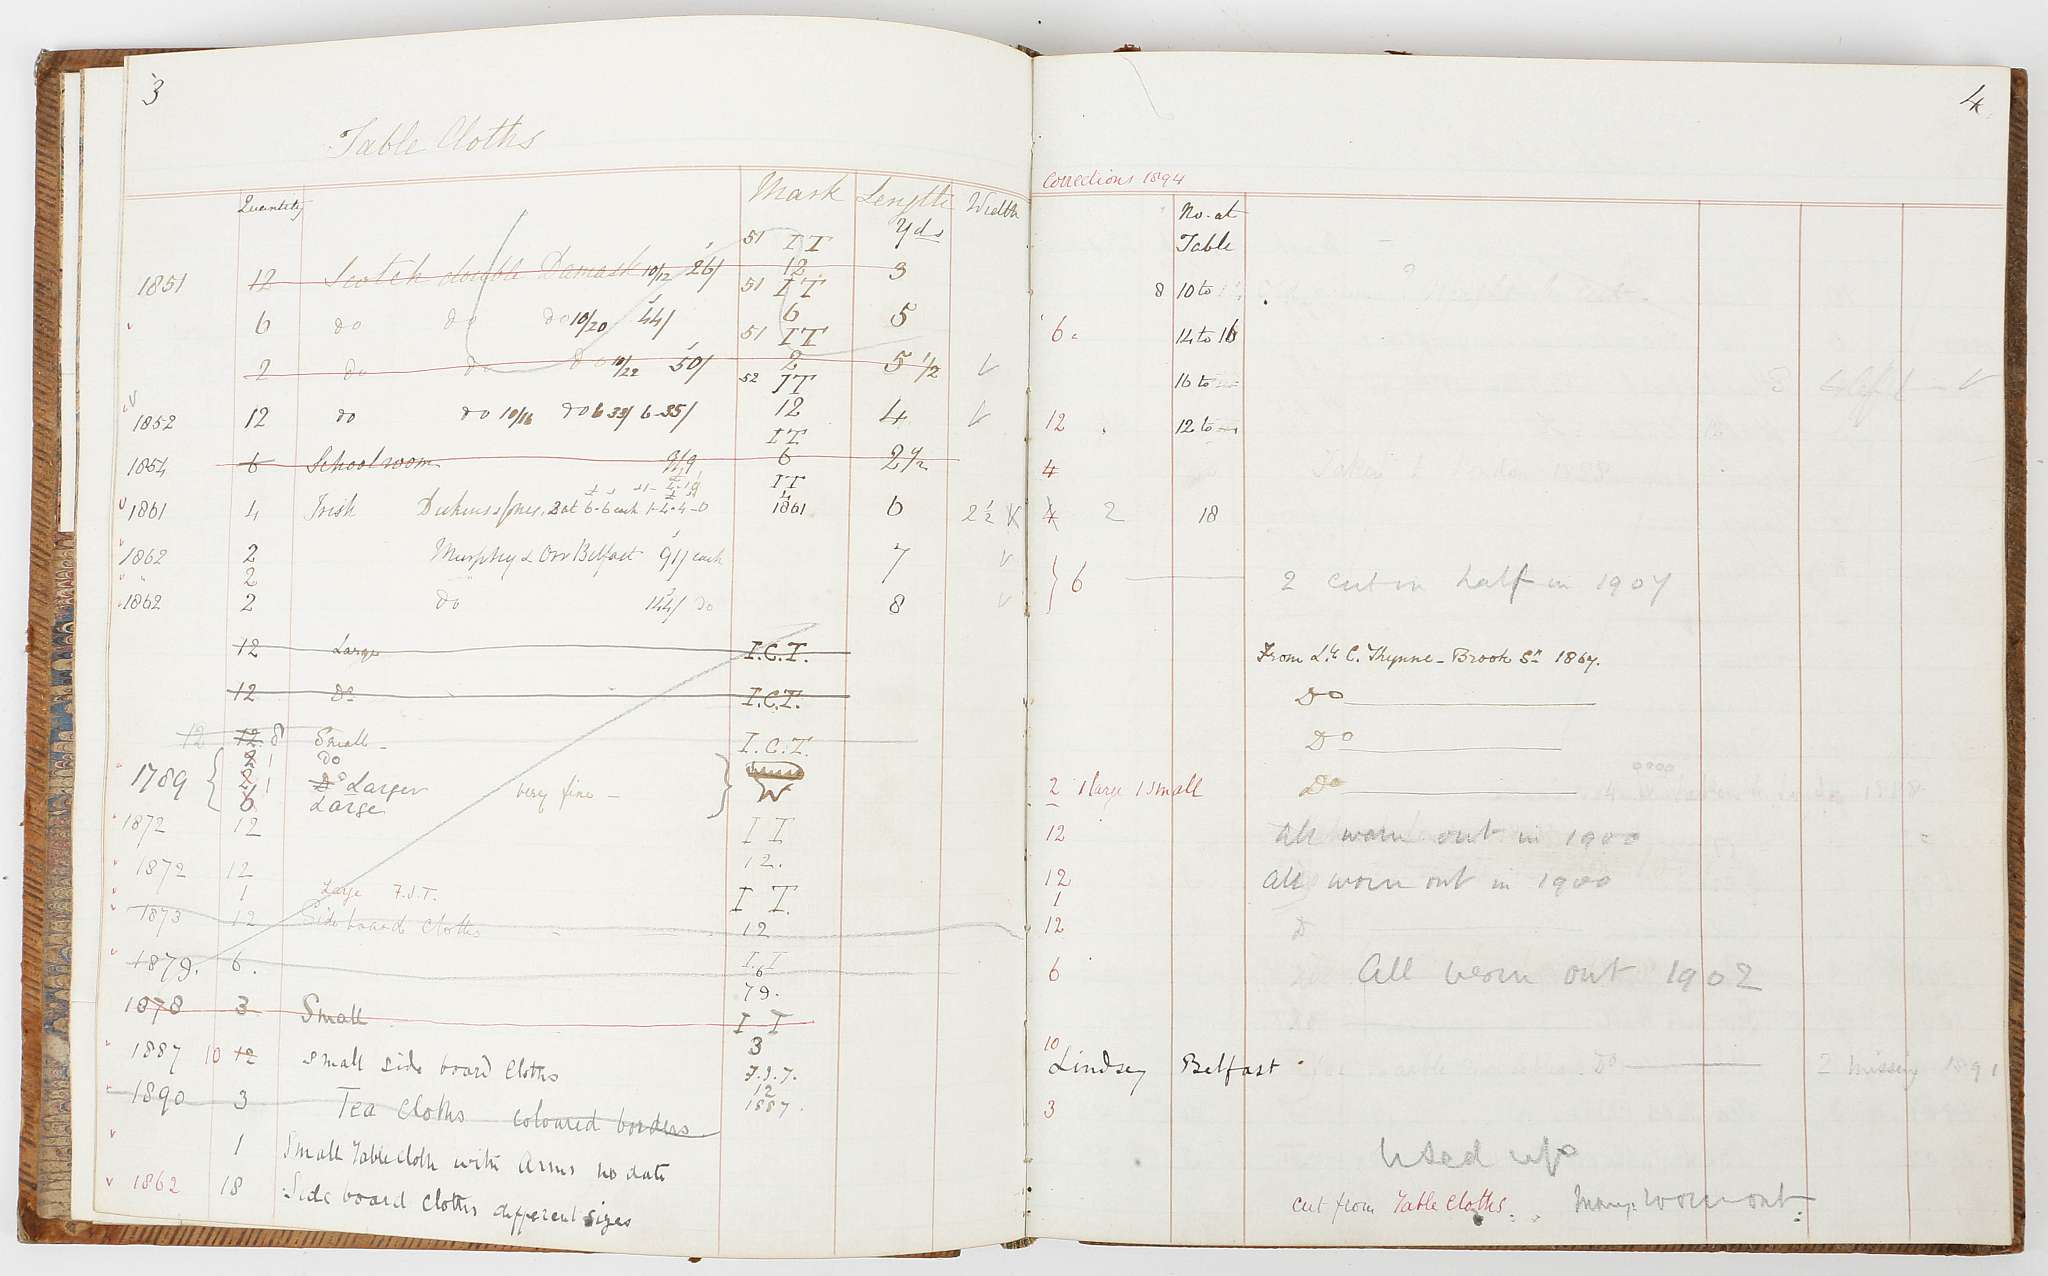 3
Table Cloths
Quantity Mark Length Width
Yds
51 IT
1851 12 Scotch double Damask 10/12 26/ 12 3
51 IT
6 do do do 10/20 44/ 6 5
51 IT
2 do do do 10/22 50/ 2 5 1/2
52 IT
1852 12 do do 10/16 do 6 33/ 6-35/ 12 4
IT
1854 6 Schoolroom 9/9 6 2 1/2
IT
4
1861 4 Irish 2 at 6-6 each 1861 6 2 1/2
1862 2 Murphy & Orr Belfast 91/ each 7
" " 2
1862 2 do 144/ do 8
12 Large I.C.T.
12 Do I.C.T.
12 12 8 Small I.C.T.
2 1 do
1789 2 1 Do Larger very fine
6 Large
1872 12 I T
1872 12 12.
1 Large F.I.T. I T.
1873 12 Side board Cloths 12
1879. 6. I.T
6
79.
1878 3 Small I I
3
1887 10 12 small side board Cloths F.I.T.
12
1887.
1890 3 Tea Cloths coloured borders
1 Small Table Cloth with Arms no date
1862 18 Side board Cloths different sizes
4
Corrections 1894
No. at
Table
8 10 to
6 14 to 16
16 to
12 12 to
4
4 2 18
6 2 cut in half in 1907
From Ld. C. Thynne - Brook St. 1867.
Do
Do
2 1 large 1 small Do
12 all worn out in 1900
12 all worn out in 1900
1
12 D
6 All worn out 1902
10
Lindsey Belfast
3
Used up
cut from Table Cloths. Many worn out